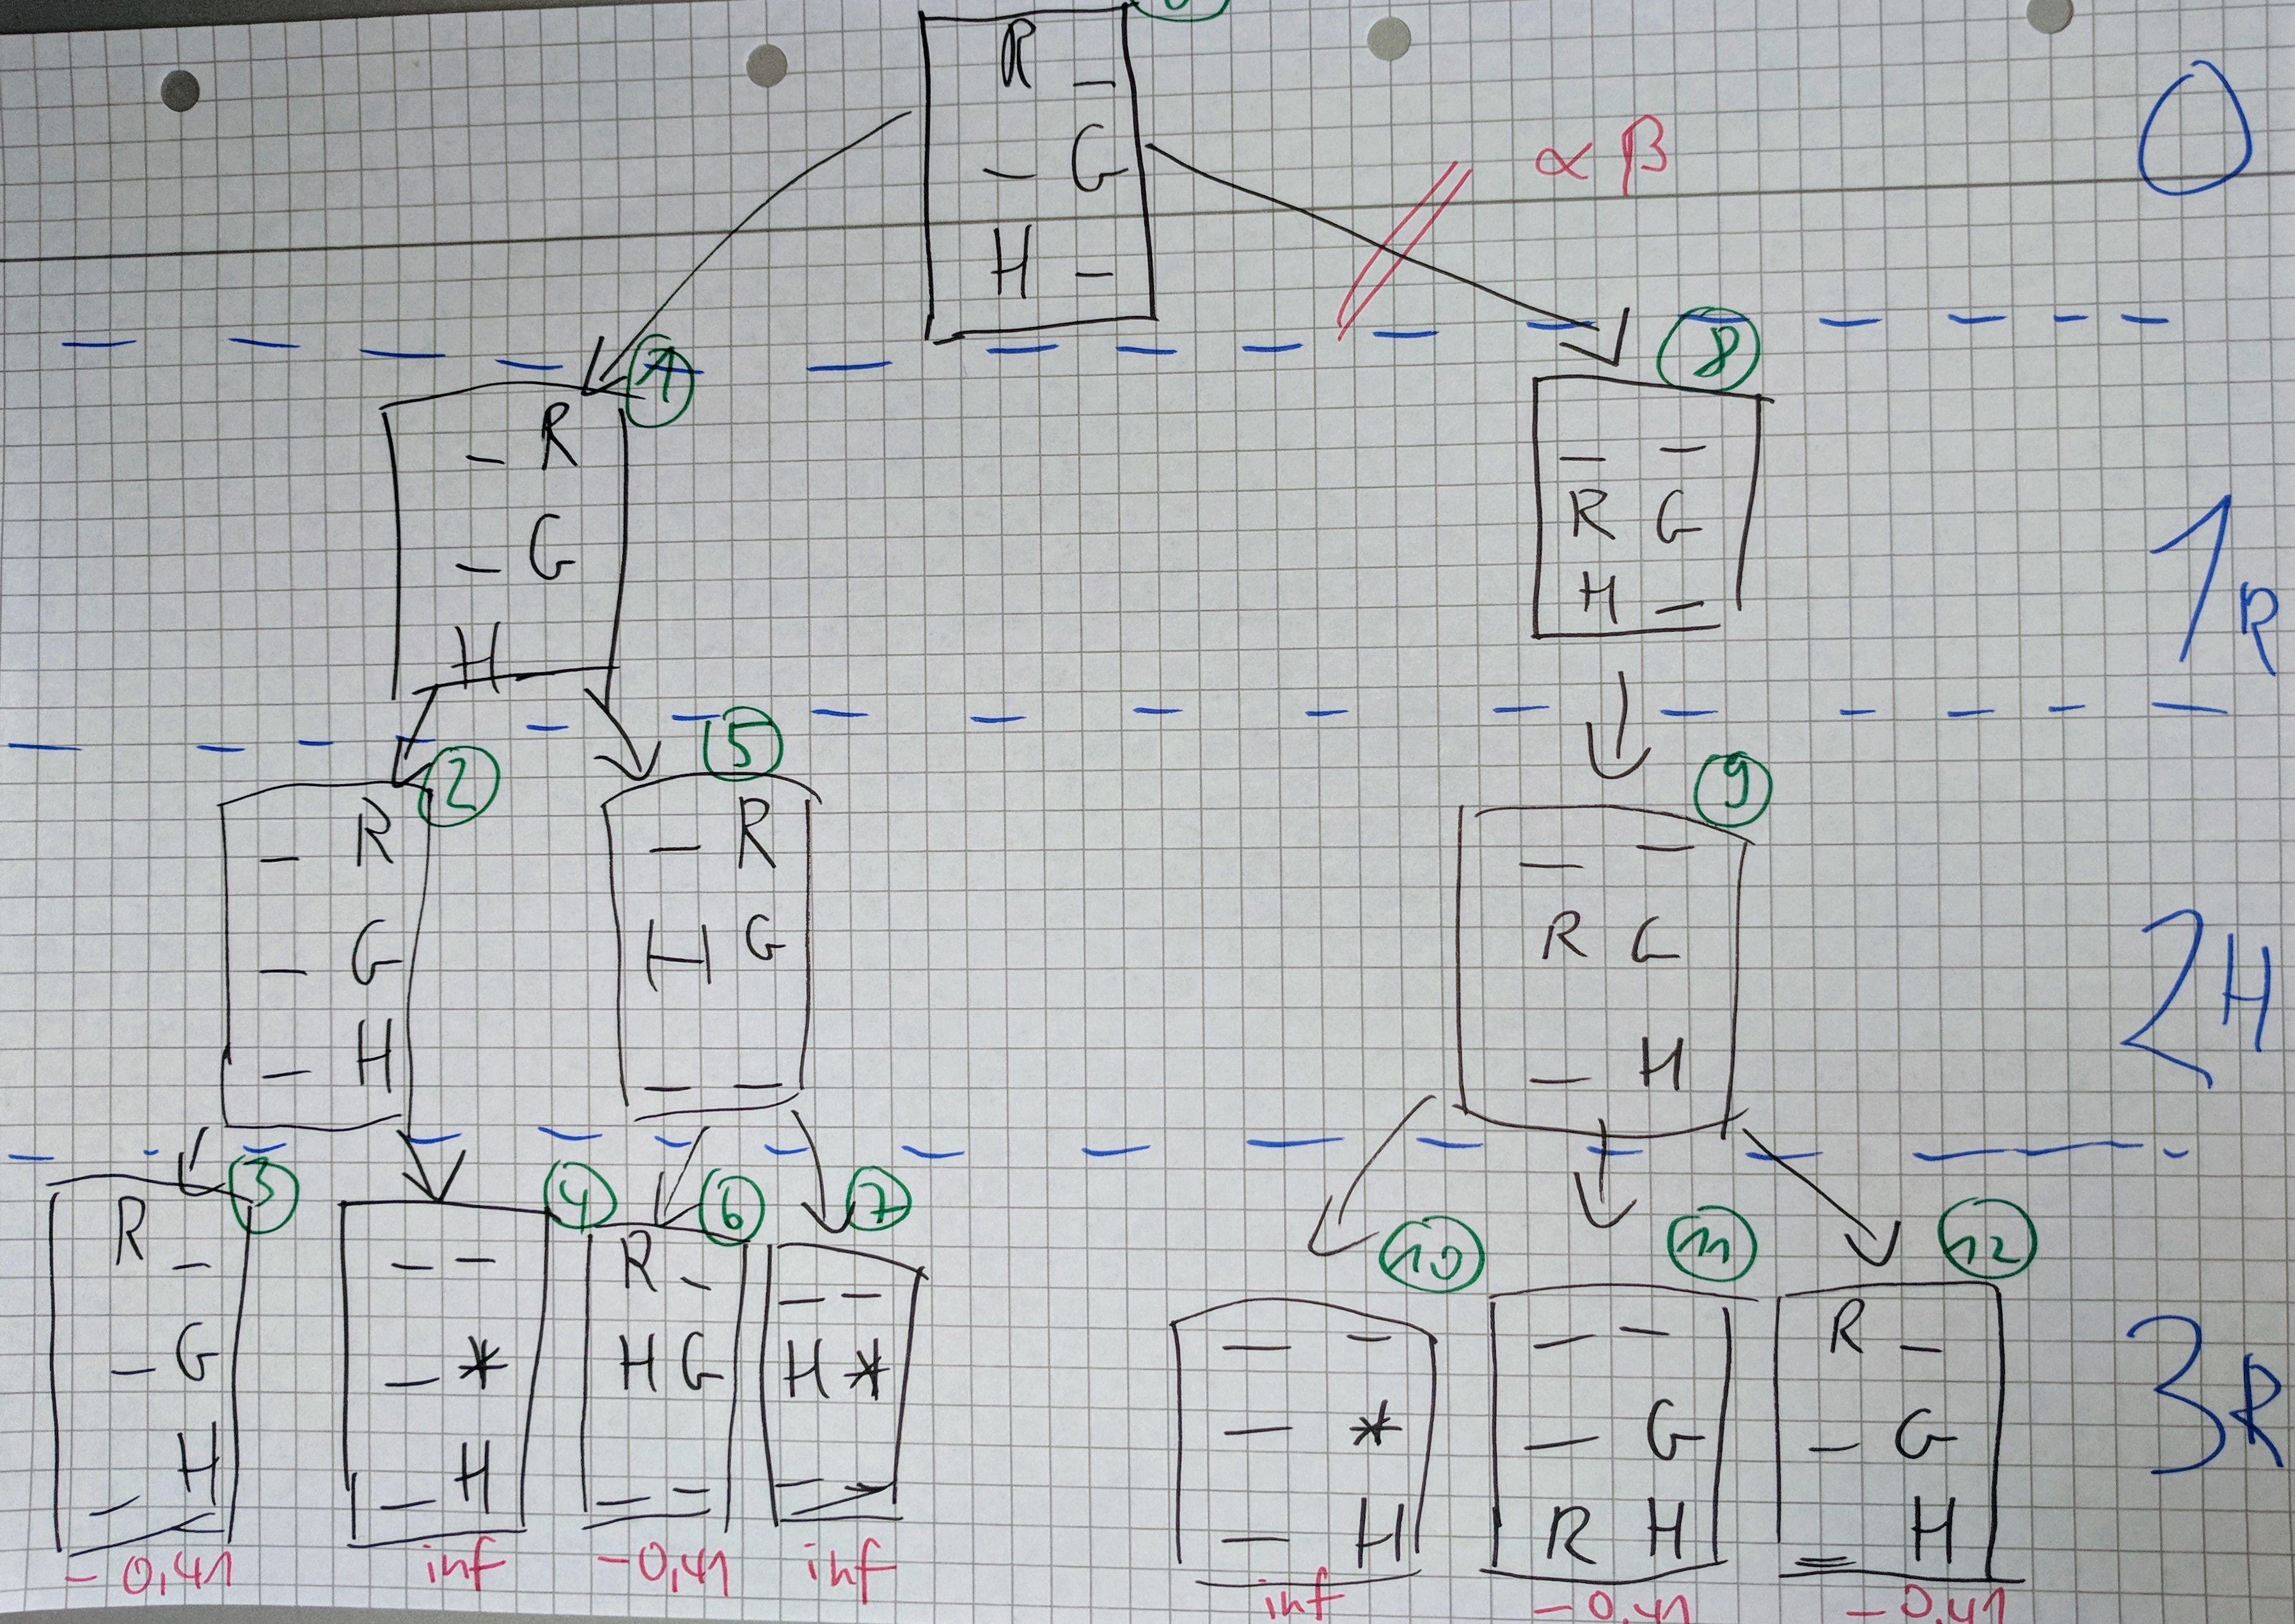 R _
_ G
H _
α β
0
1
_ R
_ G
H _
8
_ _
R G
H _
1R
2
_ R
_ G
_ H
5
_ R
H G
_ _
9
_ _
R G
_ H
2H
3
R _
_ G
_ H
-0,41
4
_ _
_ *
_ H
inf
6
R _
H G
_ _
-0,41
7
_ _
H *
_ _
inf
10
_ _
_ *
_ H
inf
11
_ _
_ G
R H
-0,41
12
R _
_ G
_ H
-0,41
3R